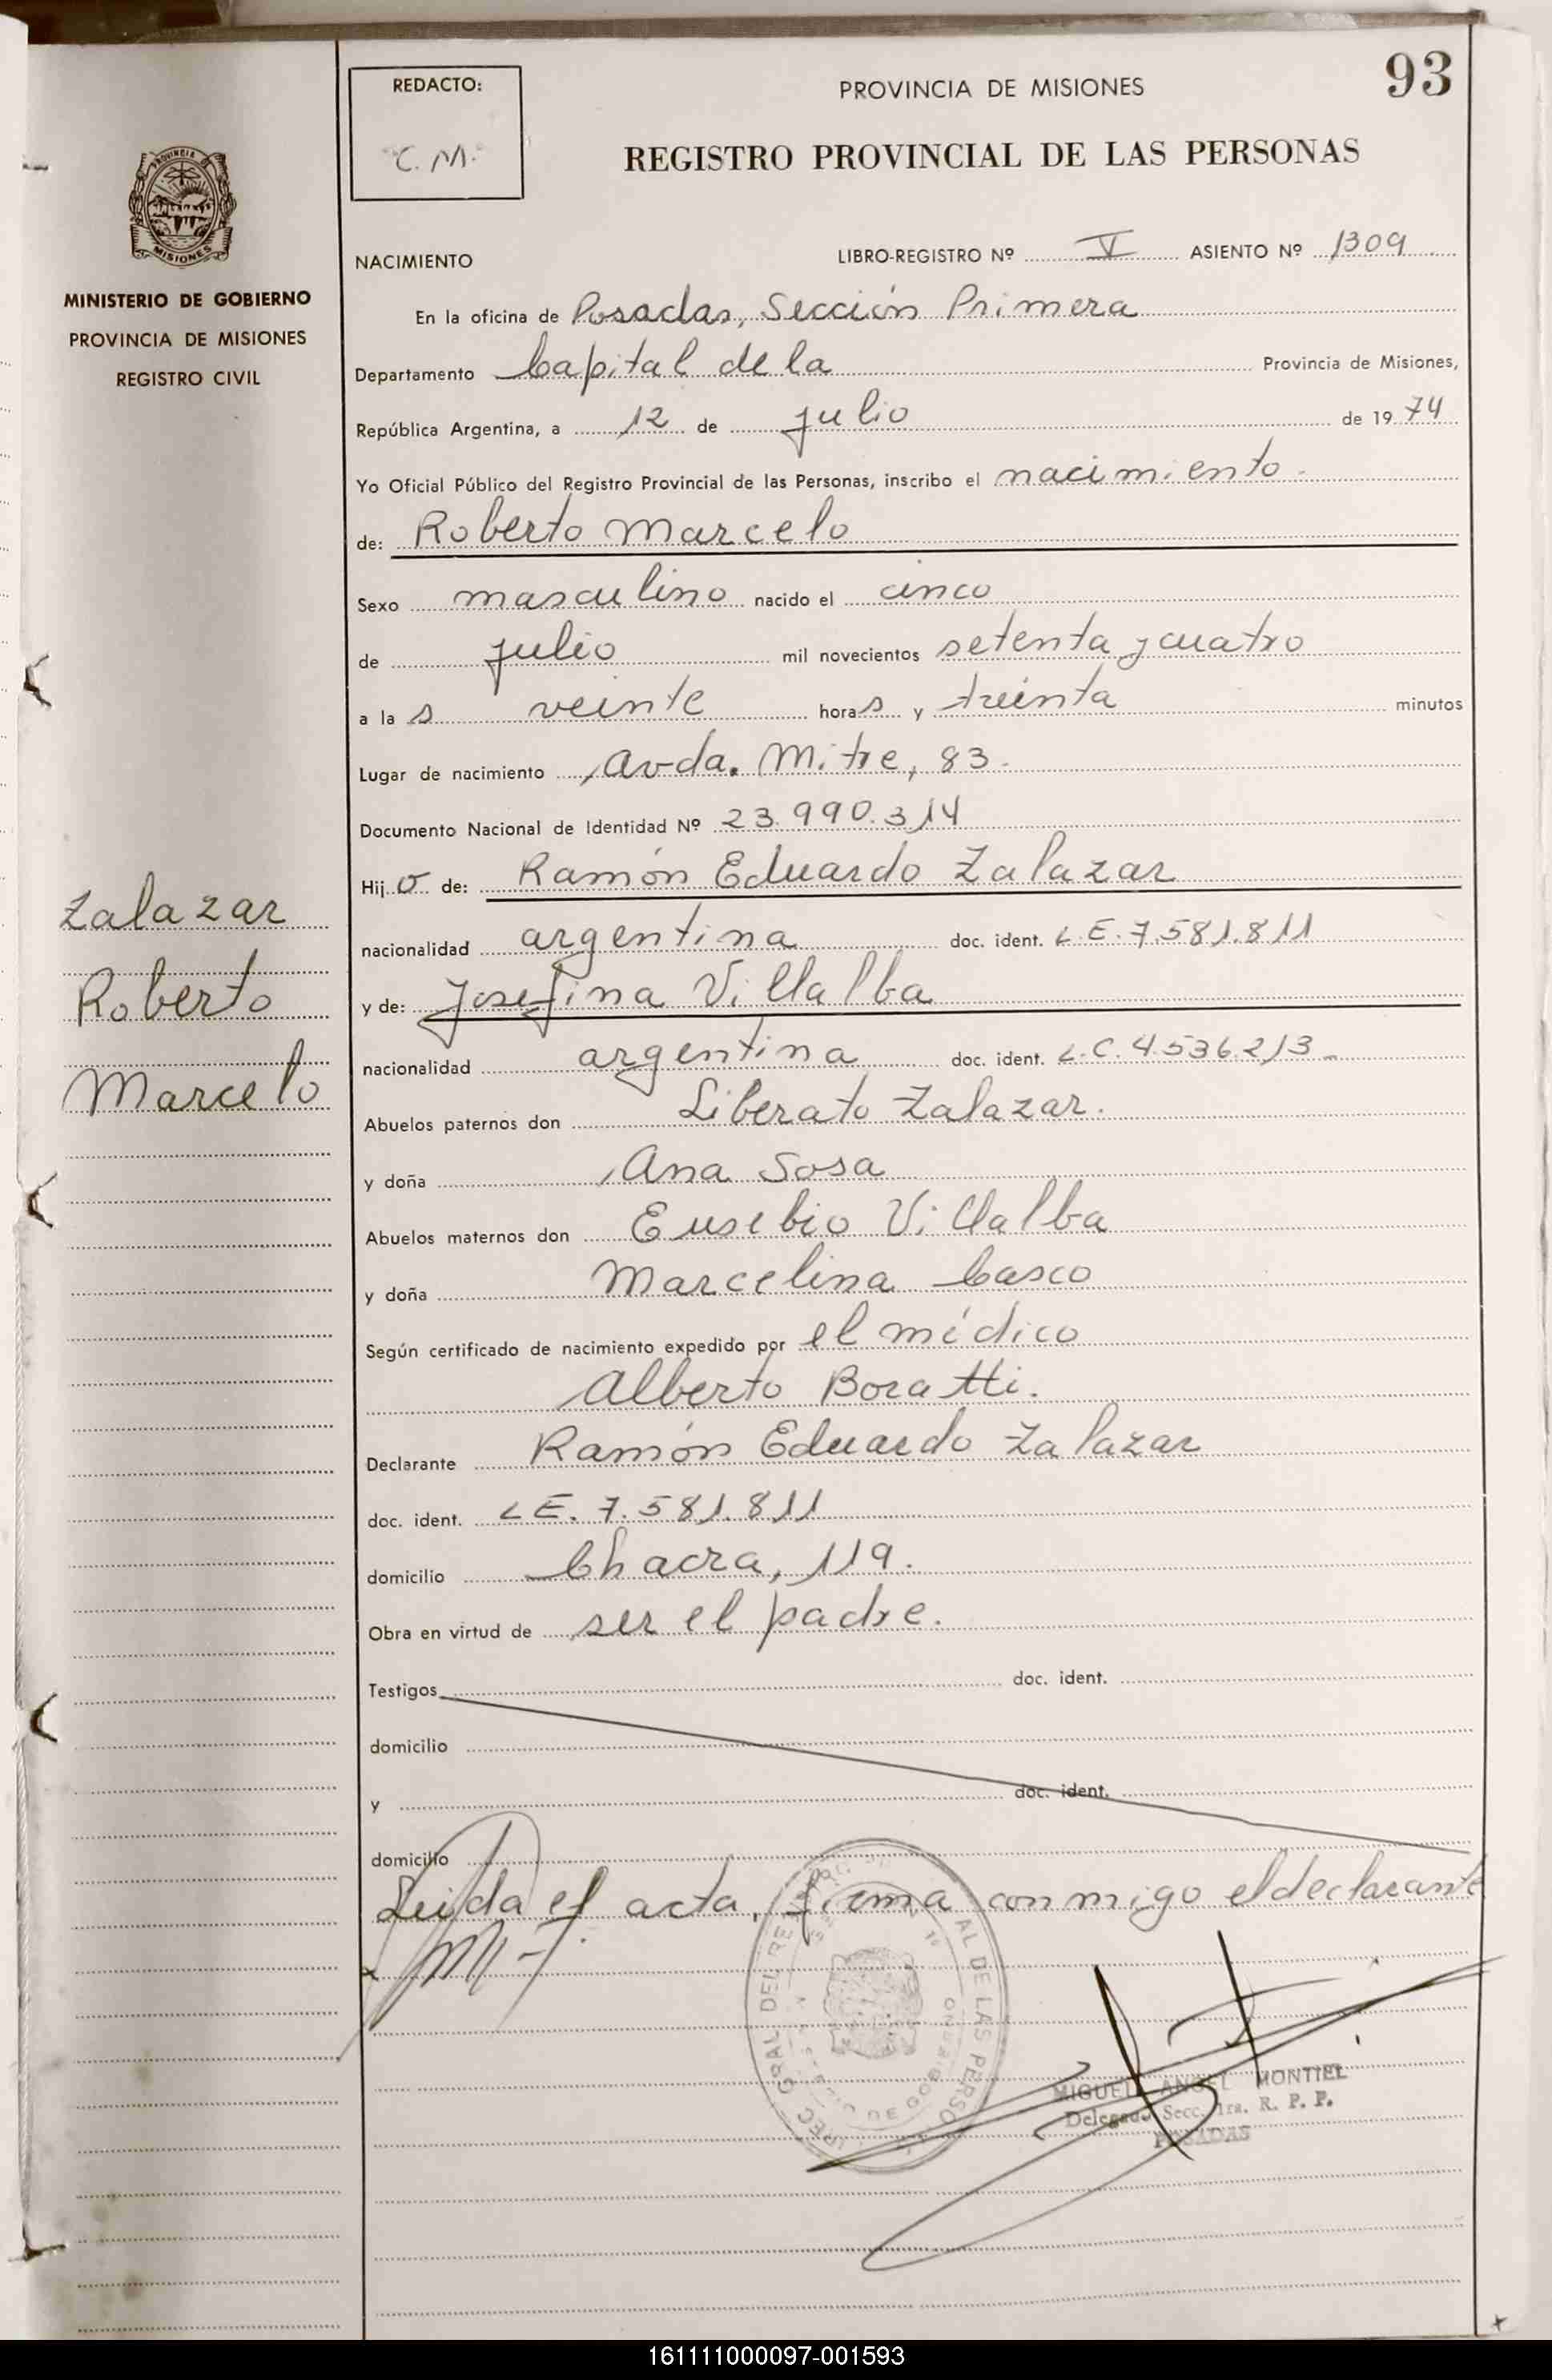 93
REDACTO:
C.M.
PROVINCIA DE MISIONES
REGISTRO PROVINCIAL DE LAS PERSONAS
PROVINCIA
MISIONES
MINISTERIO DE GOBIERNO
PROVINCIA DE MISIONES
REGISTRO CIVIL
Zalazar
Roberto
Marcelo
NACIMIENTO LIBRO-REGISTRO Nº V ASIENTO Nº 1309
En la oficina de Posadas, Sección Primera
Departamento Capital de la Provincia de Misiones,
República Argentina, a 12 de julio de 1974
Yo Oficial Público del Registro Provincial de las Personas, inscribo el nacimiento
de: Roberto Marcelo
Sexo masculino nacido el cinco
de julio mil novecientos setenta y cuatro
a las veinte horas y treinta minutos
Lugar de nacimiento Avda. Mitre, 83.
Documento Nacional de Identidad Nº 23.990.314
Hijo de: Ramón Eduardo Zalazar
nacionalidad argentina doc. ident. L.E. 7.581.811
y de: Josefina Villalba
nacionalidad argentina doc. ident. L.C. 4.536.213
Abuelos paternos don Liberato Zalazar.
y doña Ana Sosa
Abuelos maternos don Eusebio Villalba
y doña Marcelina Casco
Según certificado de nacimiento expedido por el médico
Alberto Boratti.
Declarante Ramón Eduardo Zalazar
doc. ident. L E. 7.581.811
domicilio Chacra, 119.
Obra en virtud de ser el padre.
Testigos doc. ident.
domicilio
y doc. ident.
domicilio
Leida el acta, firma conmigo el declarante
MIGUEL ANGEL MONTIEL
Delegado Secc. 1ra. R. P. P.
POSADAS
161111000097-001593